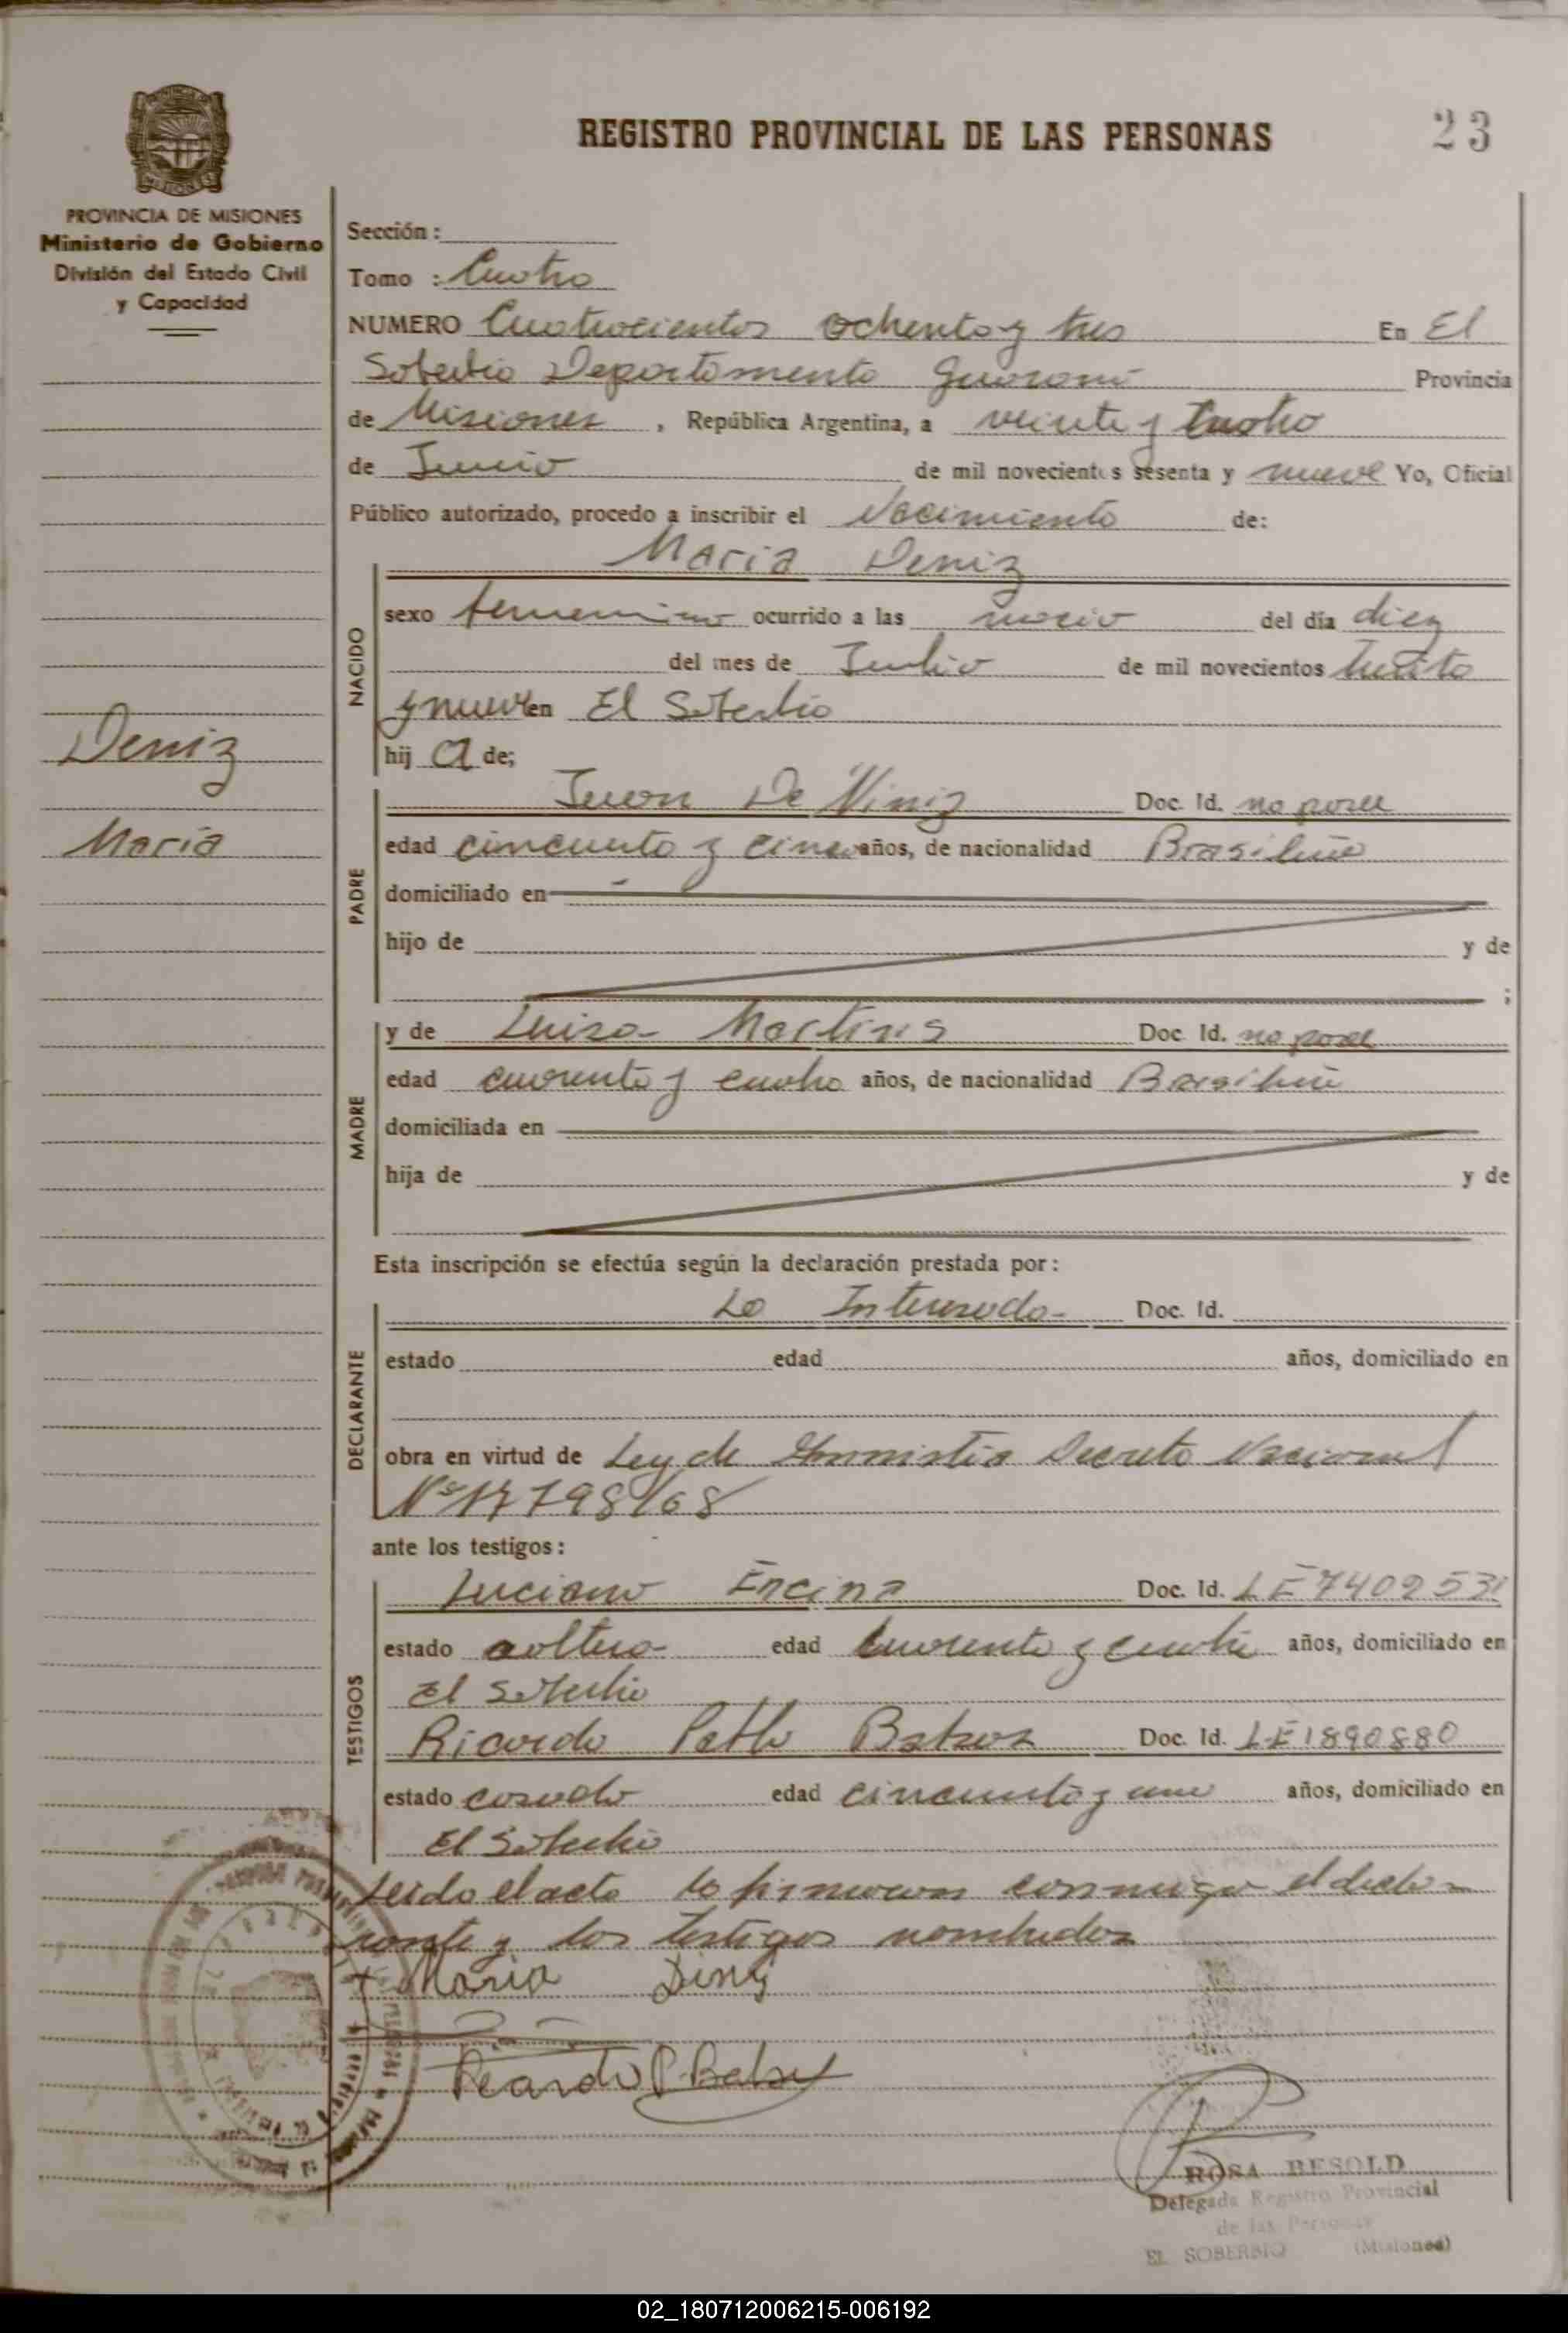 REGISTRO PROVINCIAL DE LAS PERSONAS
23
PROVINCIA DE MISIONES
Ministerio de Gobierno
División del Estado Civil
y Capacidad
Sección :
Tomo : Cuatro
NUMERO Cuatrocientos ochenta y tres En El
Soberbio Departamento Guarani Provincia
de Misiones , República Argentina, a veinte y Cuatro
de Junio de mil novecientos sesenta y nueve Yo, Oficial
Público autorizado, procedo a inscribir el Nacimiento de:
Maria Deniz
NACIDO
sexo femenino ocurrido a las del día diez
del mes de Julio de mil novecientos treinta
y nueve en El Soberbio
hij a de;
Deniz
Maria
PADRE
Juan De Niniz Doc. Id. no posee
edad cincuenta y cinco años, de nacionalidad Brasileña
domiciliado en
hijo de y de
;
MADRE
y de Luisa Martins Doc. Id. no posee
edad cuarenta y cuatro años, de nacionalidad Brasileña
domiciliada en
hija de y de
Esta inscripción se efectúa según la declaración prestada por :
DECLARANTE
La Interesada Doc. Id.
estado edad años, domiciliado en
obra en virtud de Ley de Amnistia Decreto Nacional
Nº 17798/68
ante los testigos :
TESTIGOS
Luciano Encina Doc. Id. LE 7402531
estado soltero edad Cuarenta y cuatro años, domiciliado en
El Soberbio
Ricardo Pablo Doc. Id. LE 1890880
estado casado edad cincuenta y uno años, domiciliado en
El Soberbio
Leida el acta la firmaron conmigo el decla-
rante y los testigos nombrados
+ Maria Diniz
Ricardo P
ROSA BESOLD
Delegada Registro Provincial
de las Personas
EL SOBERBIO (Misiones)
02_180712006215-006192